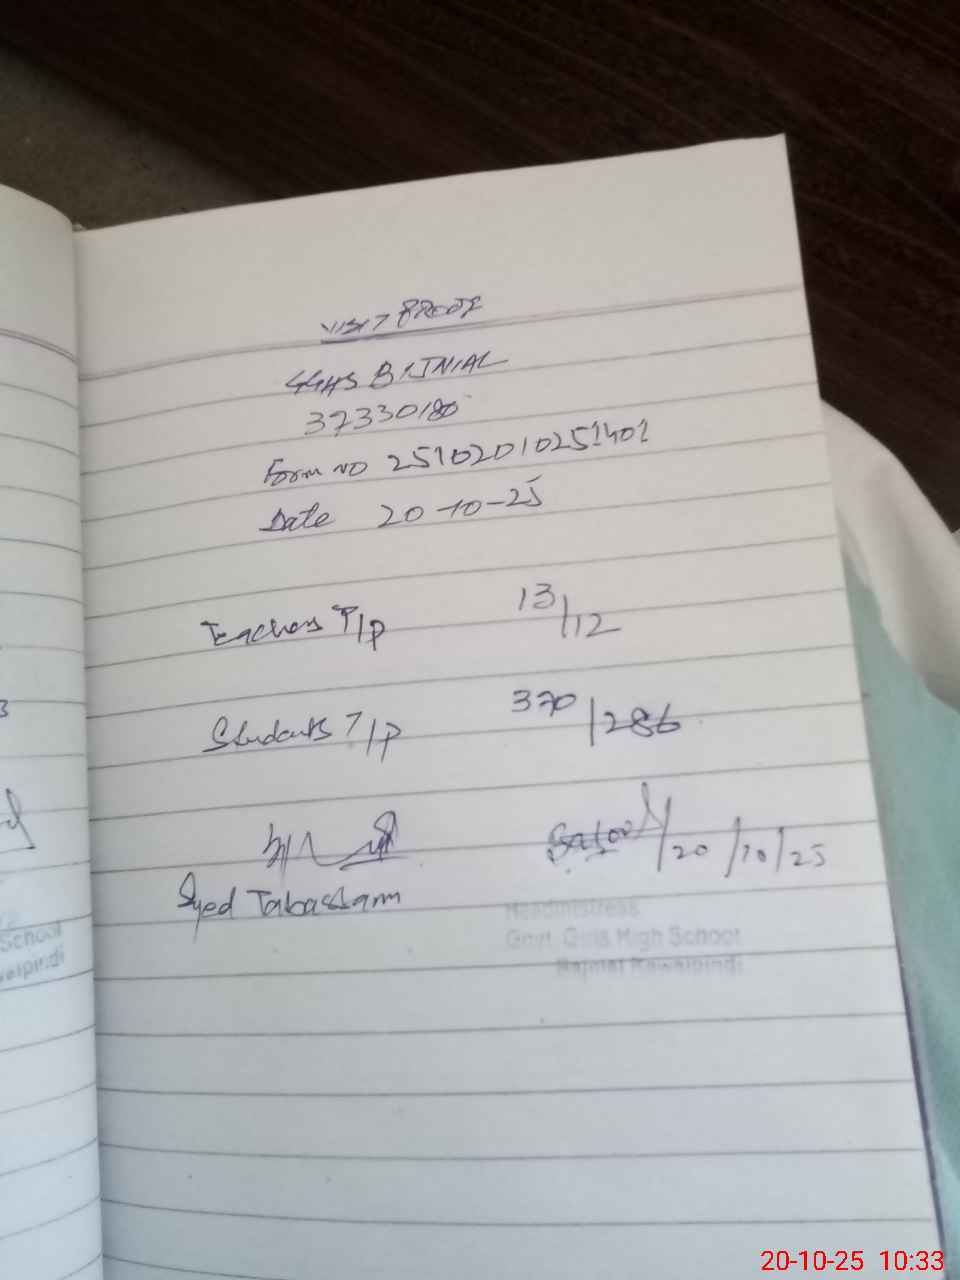 VISIT PROOF
GGHS BIJNIAL
37330180
Form no 25102010251401
Date 20-10-25
Teachers T/P 13/12
Students T/P 370/286
20/10/25
Syed Tabassam
Headmistress
Govt. Girls High School
Rawalpindi
School
20-10-25 10:33